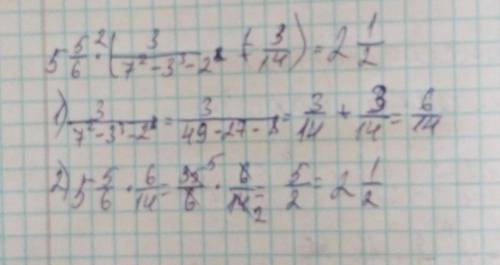 5 5/6 · (3/(7² - 3³ - 2³) + 3/14) = 2 1/2
1) 3/(7² - 3³ - 2³) = 3/(49 - 27 - 8) = 3/14 + 3/14 = 6/14
2) 5 5/6 · 6/14 = 35/6 · 6/14 = 5/2 = 2 1/2